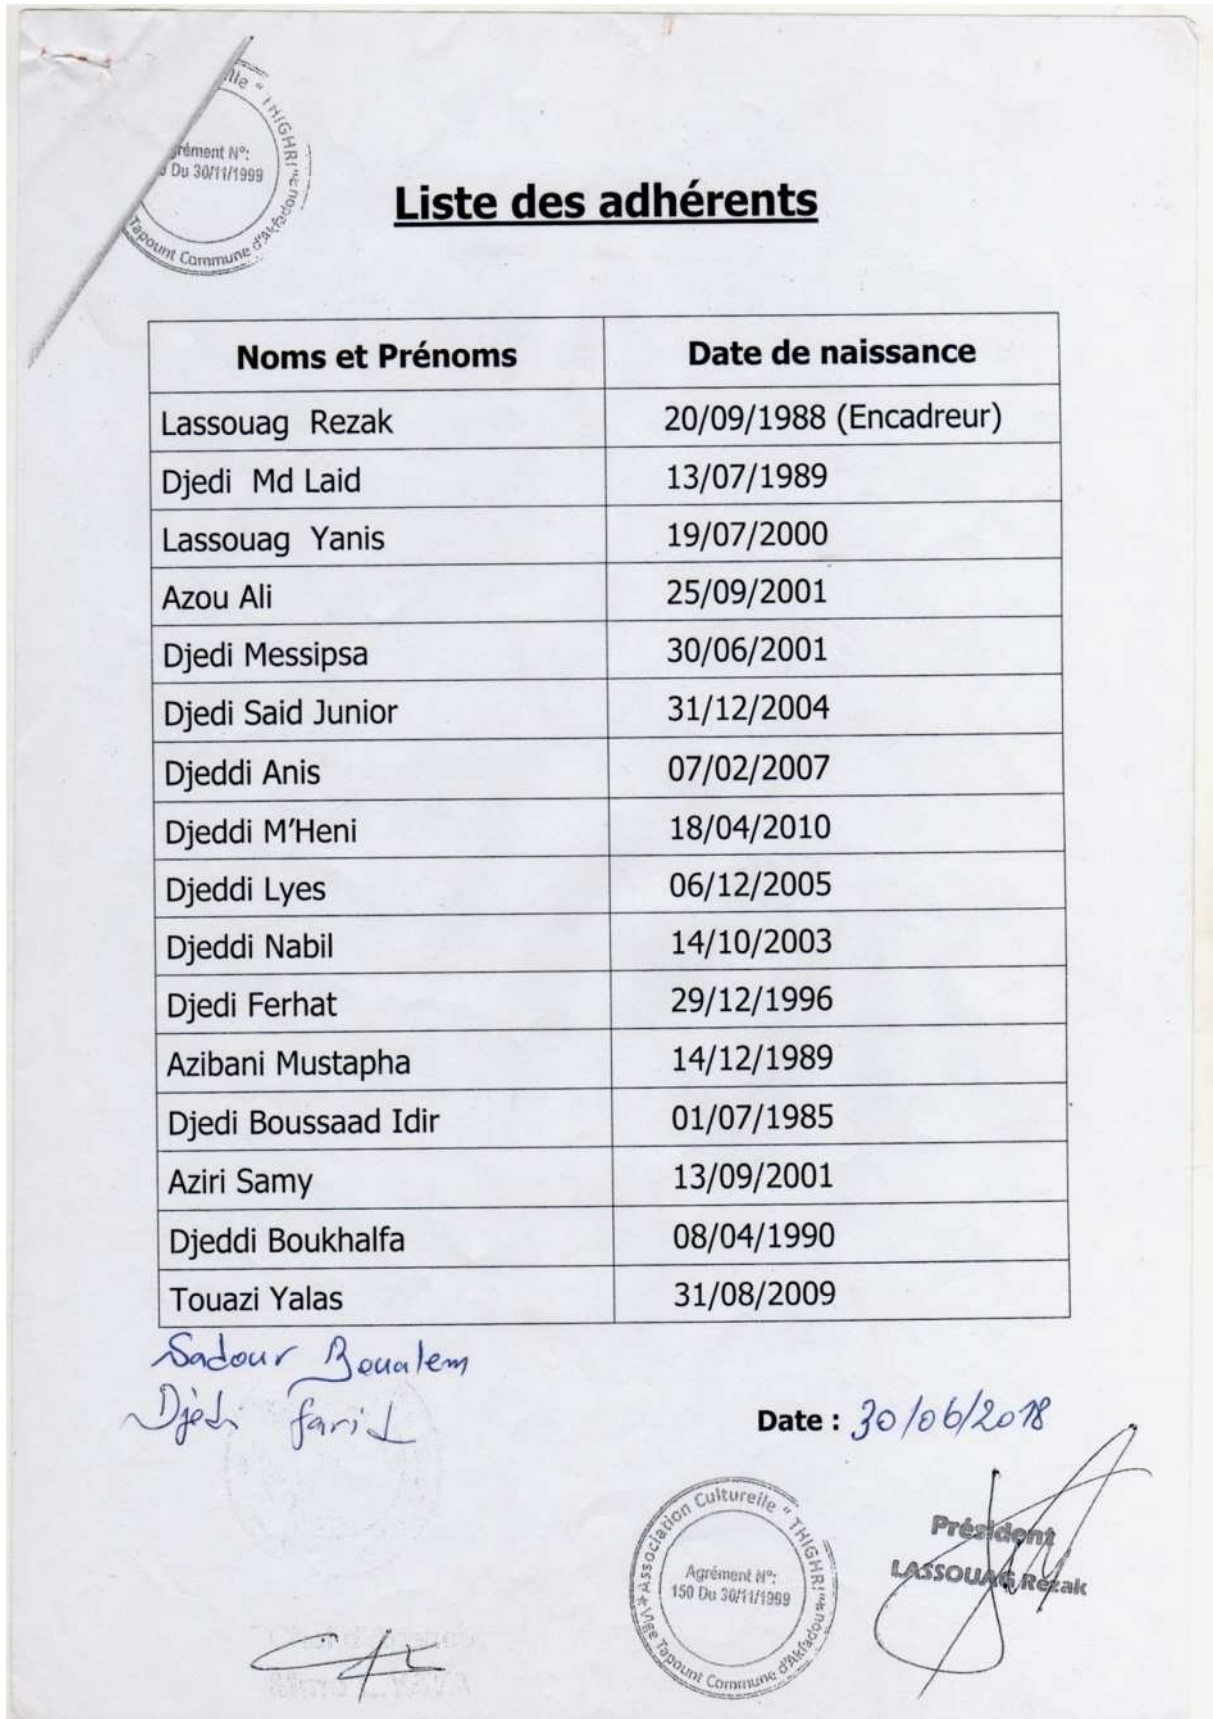 lle " THIGHRI"
rément N°:
Du 30/11/1999
Tapount Commune d'Akfadou
Liste des adhérents
Noms et Prénoms Date de naissance
Lassouag Rezak 20/09/1988 (Encadreur)
Djedi Md Laid 13/07/1989
Lassouag Yanis 19/07/2000
Azou Ali 25/09/2001
Djedi Messipsa 30/06/2001
Djedi Said Junior 31/12/2004
Djeddi Anis 07/02/2007
Djeddi M'Heni 18/04/2010
Djeddi Lyes 06/12/2005
Djeddi Nabil 14/10/2003
Djedi Ferhat 29/12/1996
Azibani Mustapha 14/12/1989
Djedi Boussaad Idir 01/07/1985
Aziri Samy 13/09/2001
Djeddi Boukhalfa 08/04/1990
Touazi Yalas 31/08/2009
Sadour Boualem
Djedi farid
Date : 30/06/2018
Association Culturelle " THIGHRI"
Agrément N°:
150 Du 30/11/1999
Tapount Commune d'Akfadou
Président
LASSOUAG Rezak